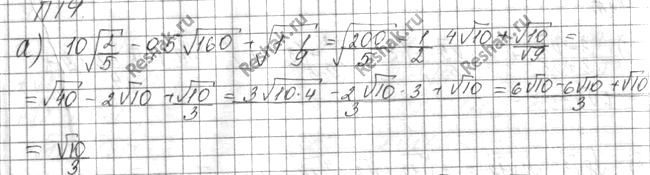 П14
а) 10√(2/5) - 0,5√160 + √(1 1/9) = √(200/5) - 1/2 · 4√10 + √10/√9 =
= √40 - 2√10 + √10/3 = (3√(10·4) - 2√10·3 + √10)/3 = (6√10 - 6√10 + √10)/3
= √10/3
Reshak.ru Reshak.ru Reshak.ru Reshak.ru